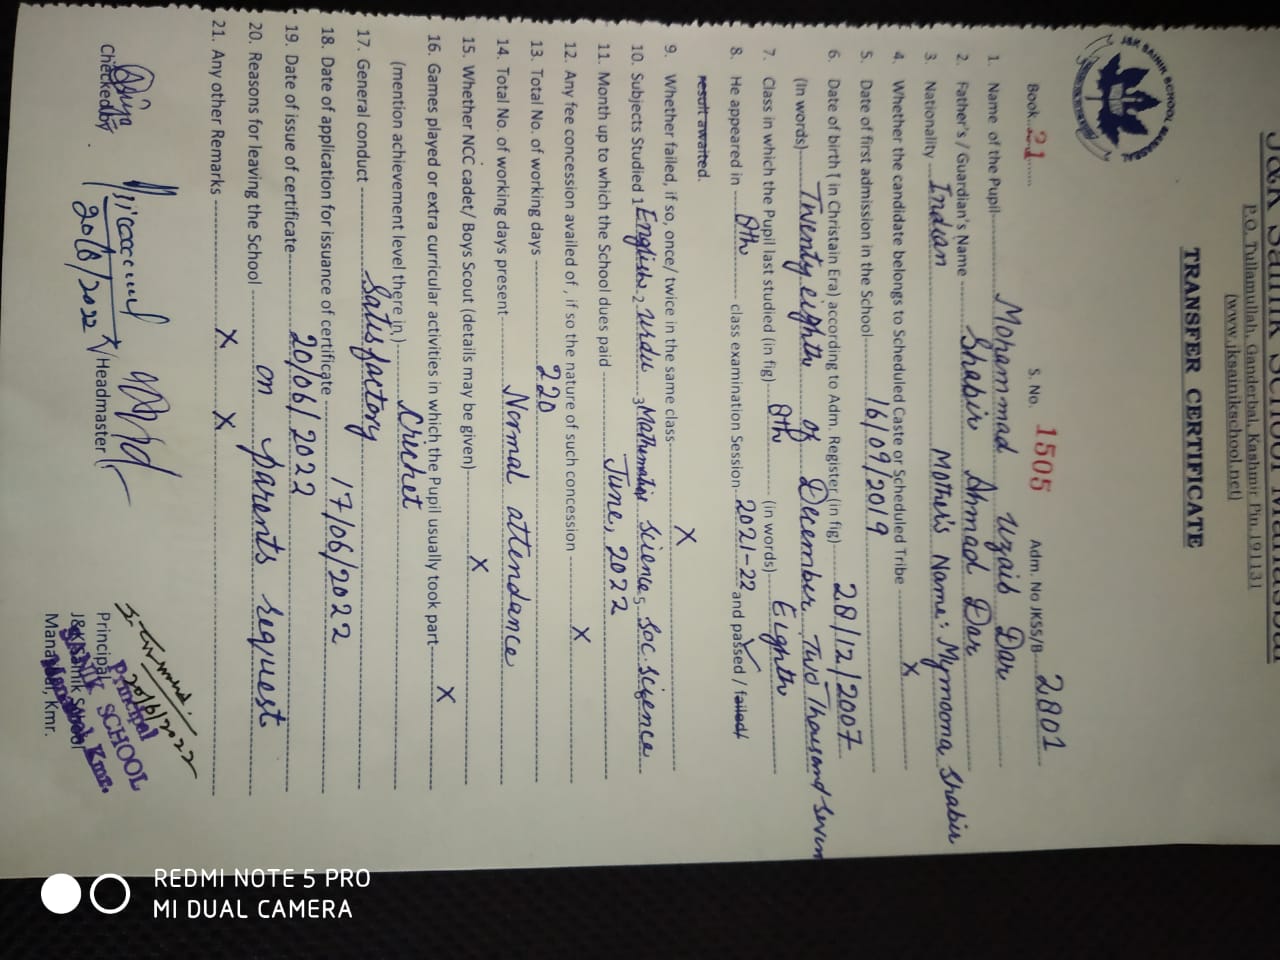 J&K Sainik School Manasbal
P.O. Tullamullah, Ganderbal, Kashmir Pin 191131
(www.jksainikschool.net)
TRANSFER CERTIFICATE
J&K SAINIK SCHOOL
Book 21 S. No. 1505 Adm. No JKSS/B 2801
1. Name of the Pupil Mohammad Uzaib Dar
2. Father's / Guardian's Name Shabir Ahmad Dar
3. Nationality Indian Mother's Name: Mymoona Shabir
4. Whether the candidate belongs to Scheduled Caste or Scheduled Tribe X
5. Date of first admission in the School 16/09/2019
6. Date of birth ( in Christain Era) according to Adm. Register (in fig) 28/12/2007
(In words) Twenty eighth of December Two Thousand Seven
7. Class in which the Pupil last studied (in fig) 8th (in words) Eighth
8. He appeared in 8th class examination Session 2021-22 and passed / failed/
result awaited.
9. Whether failed, if so, once/ twice in the same class X
10. Subjects Studied 1 English 2 Urdu 3 Mathematics Science 5 Soc. Science
11. Month up to which the School dues paid June, 2022
12. Any fee concession availed of , if so the nature of such concession X
13. Total No. of working days 220
14. Total No. of working days present Normal attendance
15. Whether NCC cadet/ Boys Scout (details may be given) X
16. Games played or extra curricular activities in which the Pupil usually took part X
(mention achievement level there in,) Cricket
17. General conduct Satisfactory
18. Date of application for issuance of certificate 17/06/2022
19. Date of issue of certificate 20/06/2022
20. Reasons for leaving the School on parents request
21. Any other Remarks X X
20/6/2022
20/6/2022
Checked by (Headmaster)
Principal
J&K Sainik School
Manasbal, Kmr.
Principal
SAINIK SCHOOL
Manasbal, Kmr.
REDMI NOTE 5 PRO
MI DUAL CAMERA